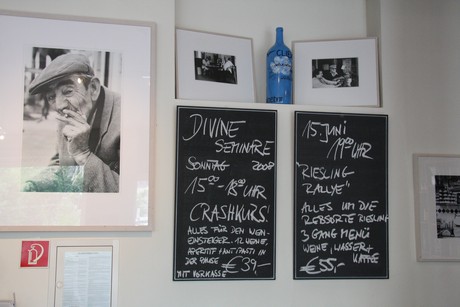 DIVINE
SEMINARE
SONNTAG 2008
15.00-18.00 UHR
CRASHKURS!
ALLES FÜR DEN WEIN-
EINSTEIGER..12 WEINE,
APERITIF + ANTIPASTI IN
DER PAUSE € 39,-
MIT VORKASSE
15. JUNI
19.00 UHR
"RIESLING
RALLYE"
ALLES UM DIE
REBSORTE RIESLING
3 GANG MENÜ
WEINE, WASSER+
KAFFEE
€ 55,-